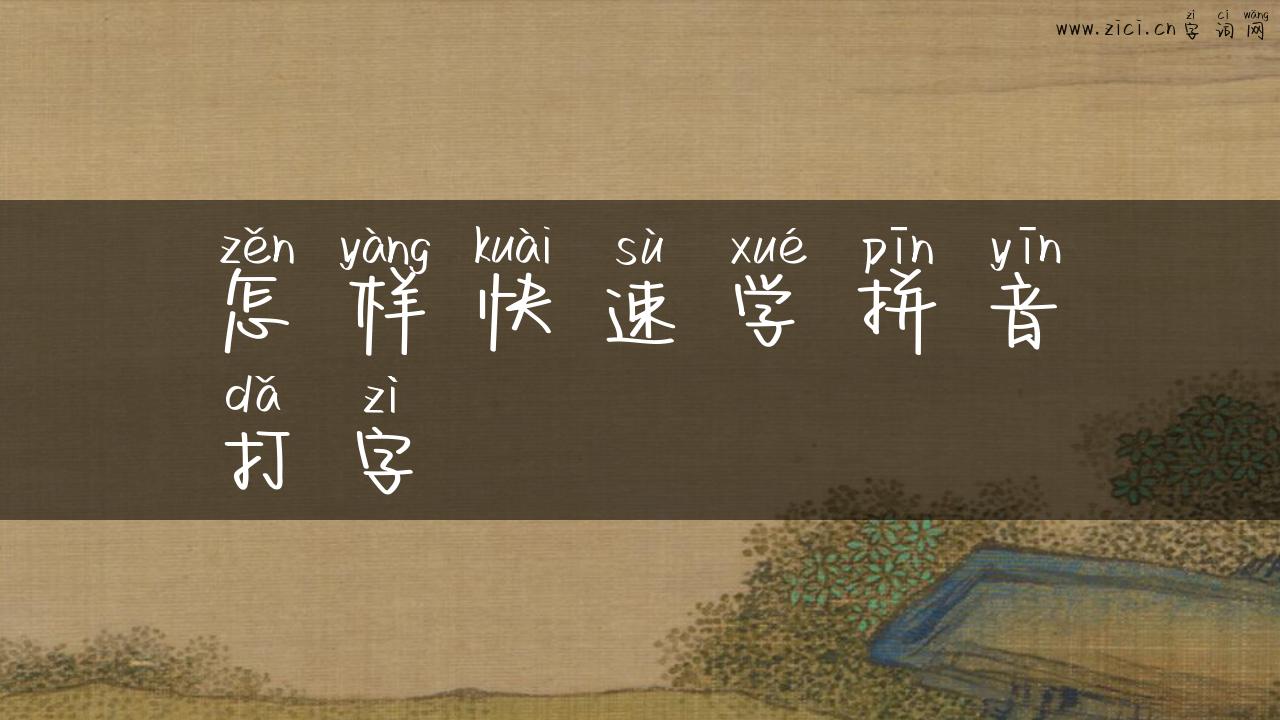 zì cí wǎng
www.zici.cn 字词网
zěn yàng kuài sù xué pīn yīn
怎样快速学拼音
dǎ zì
打字